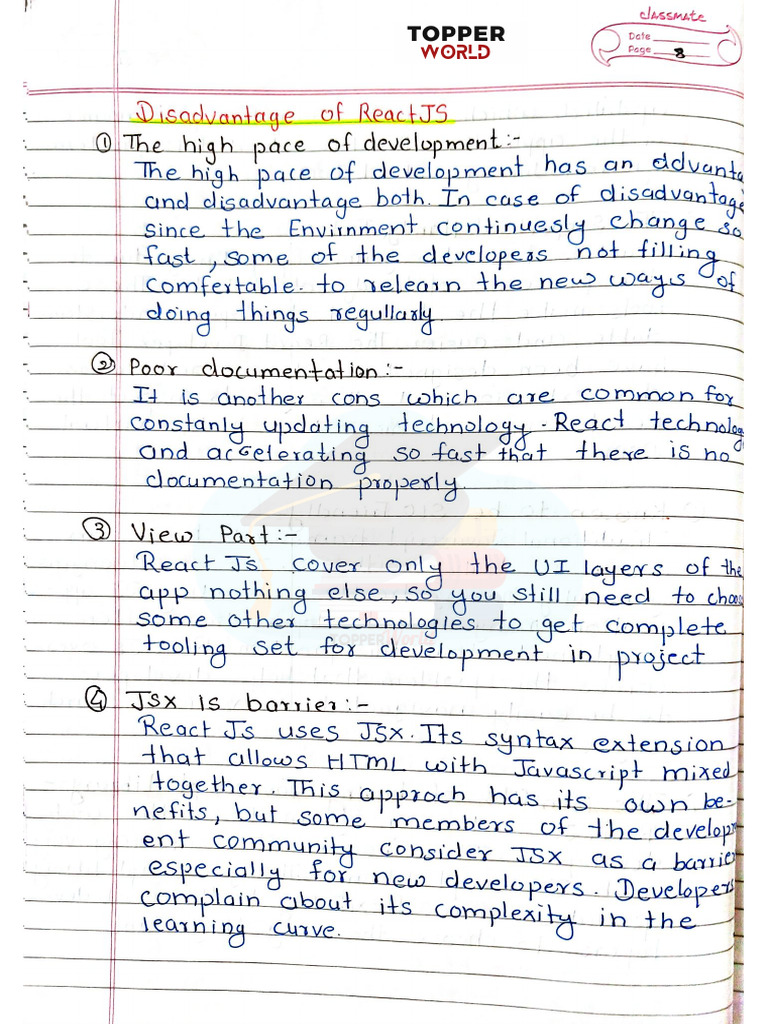 classmate
TOPPER
WORLD
Date
Page 8
Disadvantage of ReactJS
① The high pace of development:-
The high pace of development has an advanta
and disadvantage both. In case of disadvantage
since the Envirnment continuesly change so
fast, some of the developers not filling
comfertable. to relearn the new ways of
doing things regullarly.
② Poor documentation:-
It is another cons which are common for
constanly updating technology. React technolog
and accelerating so fast that there is no
documentation properly.
③ View Part:-
React Js cover only the UI layers of the
app nothing else, so you still need to choos
some other technologies to get complete
TOPPERWorld
tooling set for development in project
④ JSX is barrier:-
React Js uses JSX. Its syntax extension
that allows HTML with Javascript mixed
together. This approch has its own be-
nefits, but some members of the developm
ent community consider JSX as a barrier
especially for new developers. Developers
complain about its complexity in the
learning curve.